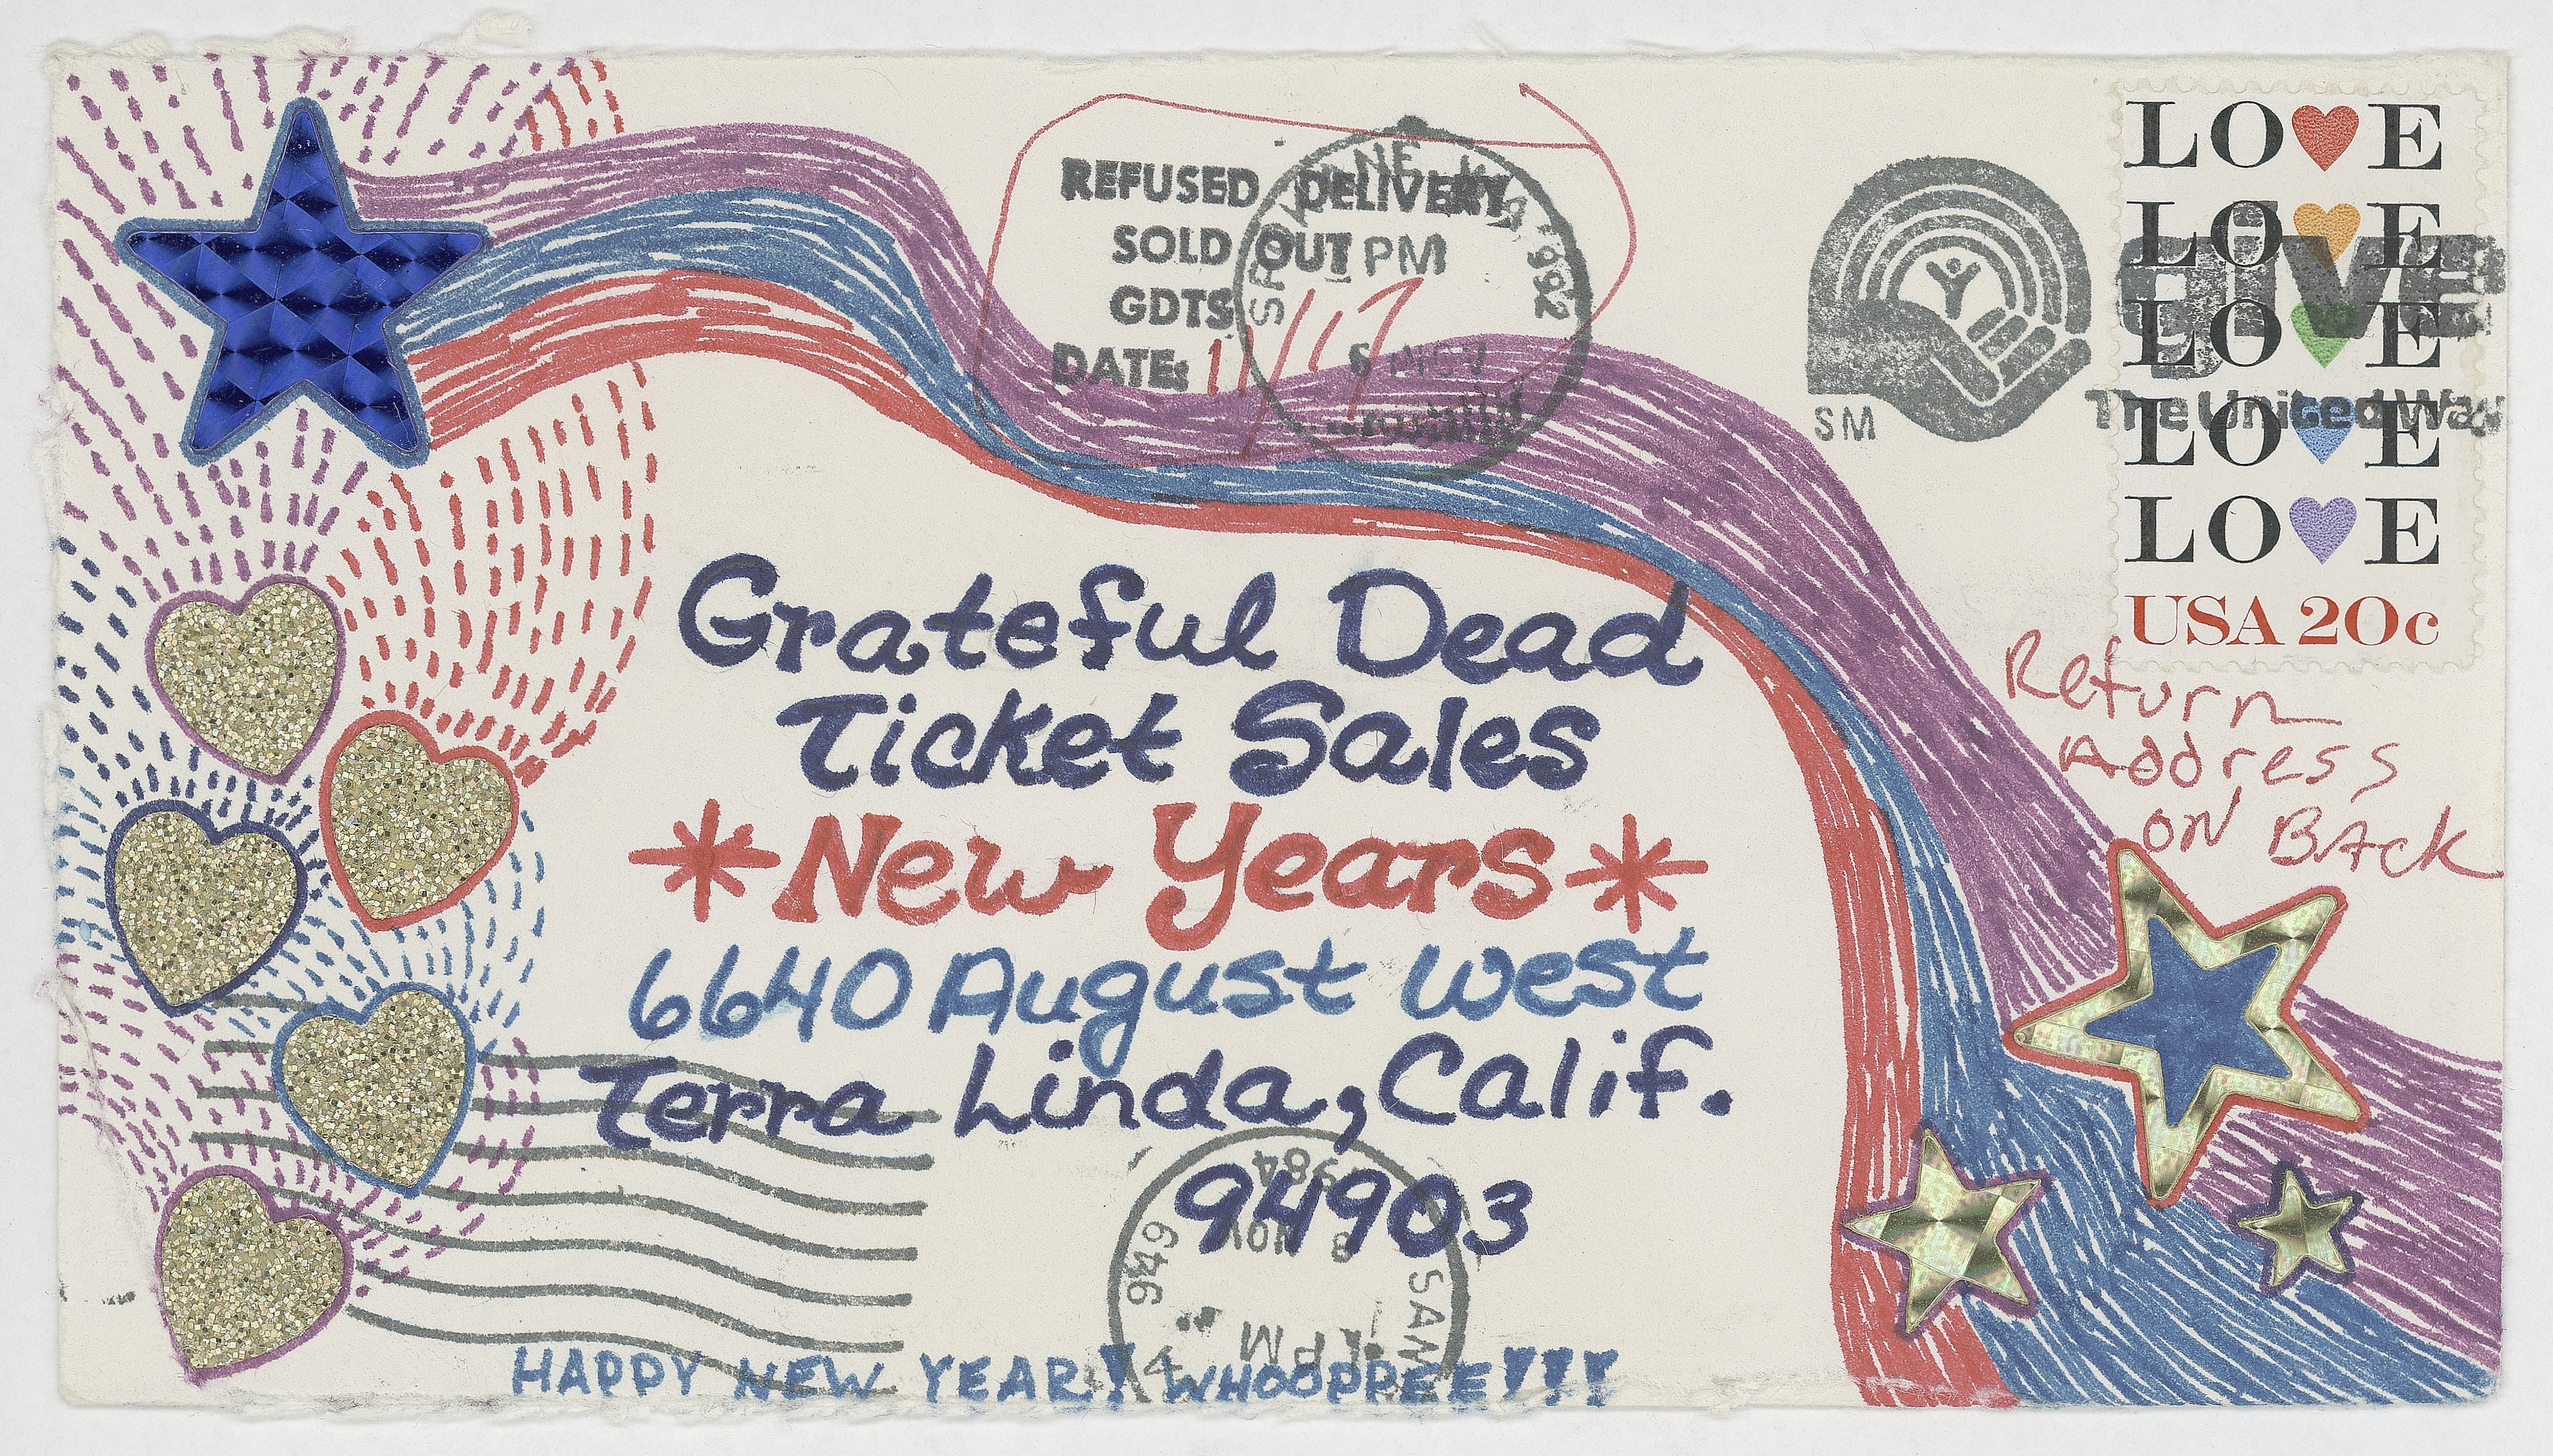 REFUSED DELIVERY
SOLD OUT
GDTS
DATE: 11/17
SPOKANE, WA 992
PM
6 NOV
SM
GIVE
The United Way
LOVE
LOVE
LOVE
LOVE
LOVE
USA 20c
Return
Address
on BAck
Grateful Dead
Ticket Sales
*New Years*
6640 August West
Terra Linda, Calif.
94903
SAN
949
PM
8 NOV
1984
HAPPY NEW YEAR! WHOOPPEE!!!